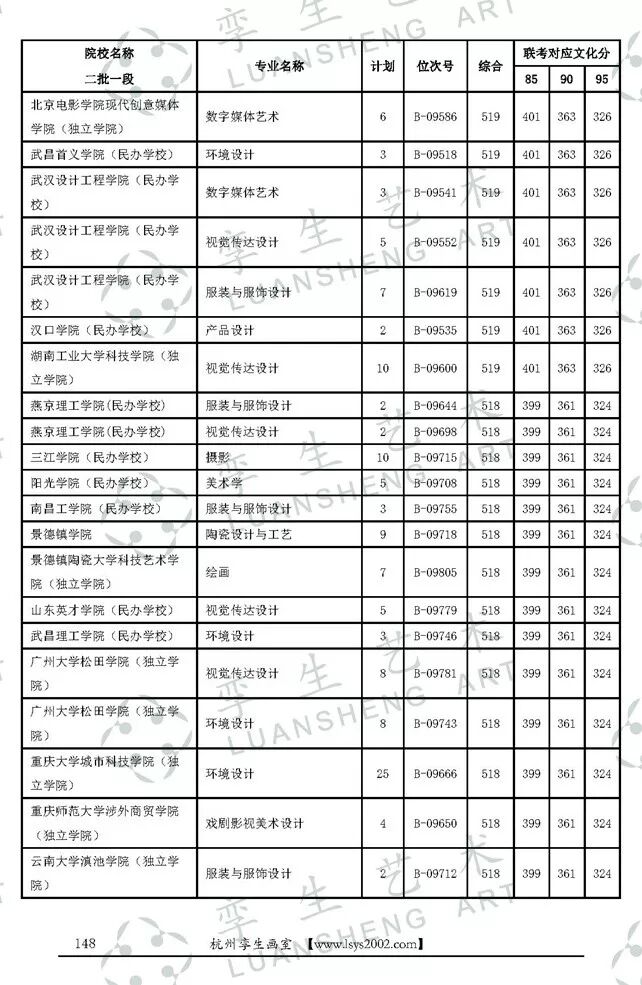 院校名称 专业名称 计划 位次号 综合 联考对应文化分
二批一段 85 90 95
北京电影学院现代创意媒体
学院（独立学院） 数字媒体艺术 6 B-09586 519 401 363 326
武昌首义学院（民办学校） 环境设计 3 B-09518 519 401 363 326
武汉设计工程学院（民办学
校） 数字媒体艺术 3 B-09541 519 401 363 326
武汉设计工程学院（民办学
校） 视觉传达设计 5 B-09552 519 401 363 326
武汉设计工程学院（民办学
校） 服装与服饰设计 7 B-09619 519 401 363 326
汉口学院（民办学校） 产品设计 2 B-09535 519 401 363 326
湖南工业大学科技学院（独
立学院） 视觉传达设计 10 B-09600 519 401 363 326
燕京理工学院(民办学校) 服装与服饰设计 2 B-09644 518 399 361 324
燕京理工学院(民办学校) 视觉传达设计 2 B-09698 518 399 361 324
三江学院（民办学校） 摄影 10 B-09715 518 399 361 324
阳光学院（民办学校） 美术学 5 B-09708 518 399 361 324
南昌工学院（民办学校） 服装与服饰设计 3 B-09755 518 399 361 324
景德镇学院 陶瓷设计与工艺 9 B-09718 518 399 361 324
景德镇陶瓷大学科技艺术学
院（独立学院） 绘画 7 B-09805 518 399 361 324
山东英才学院（民办学校） 视觉传达设计 5 B-09779 518 399 361 324
武昌理工学院（民办学校） 环境设计 3 B-09746 518 399 361 324
广州大学松田学院（独立学
院） 视觉传达设计 8 B-09781 518 399 361 324
广州大学松田学院（独立学
院） 环境设计 8 B-09743 518 399 361 324
重庆大学城市科技学院（独
立学院） 环境设计 25 B-09666 518 399 361 324
重庆师范大学涉外商贸学院
（独立学院） 戏剧影视美术设计 4 B-09650 518 399 361 324
云南大学滇池学院（独立学
院） 服装与服饰设计 2 B-09712 518 399 361 324
148 杭州孪生画室 【www.lsys2002.com】
孪生艺术
LUANSHENG ART